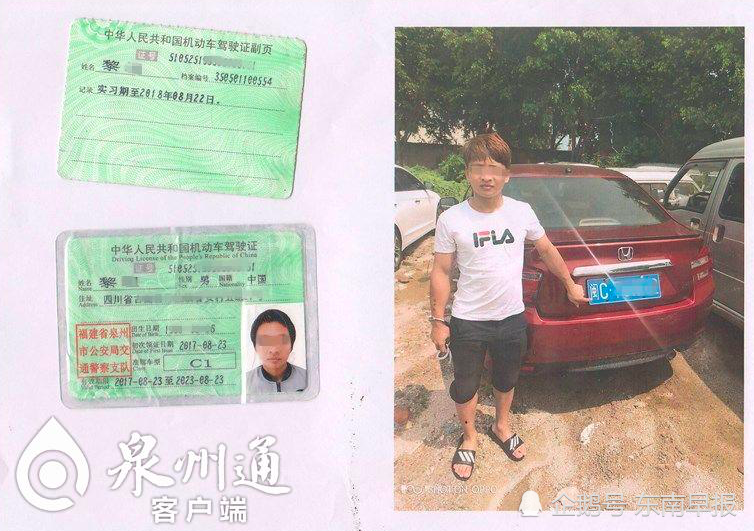 中华人民共和国机动车驾驶证副页
证号 51052519
姓名 黎 档案编号 350501100554
记录 实习期至2018年08月22日。
中华人民共和国机动车驾驶证
Driving License of the People's Republic of China
证号 510525
姓名 黎 性别 男 国籍 中国
Name Sex Nationality
住址 四川省
Address
福建省泉州
市公安局交
通警察支队
出生日期
Date of Birth
初次领证日期 2017-08-23
Date of First Issue
准驾车型 C1
Class
有效期限 2017-08-23 至 2023-08-23
Valid Period
泉州通
客户端
FILA
闽C
SHOT ON
企鹅号 东南早报